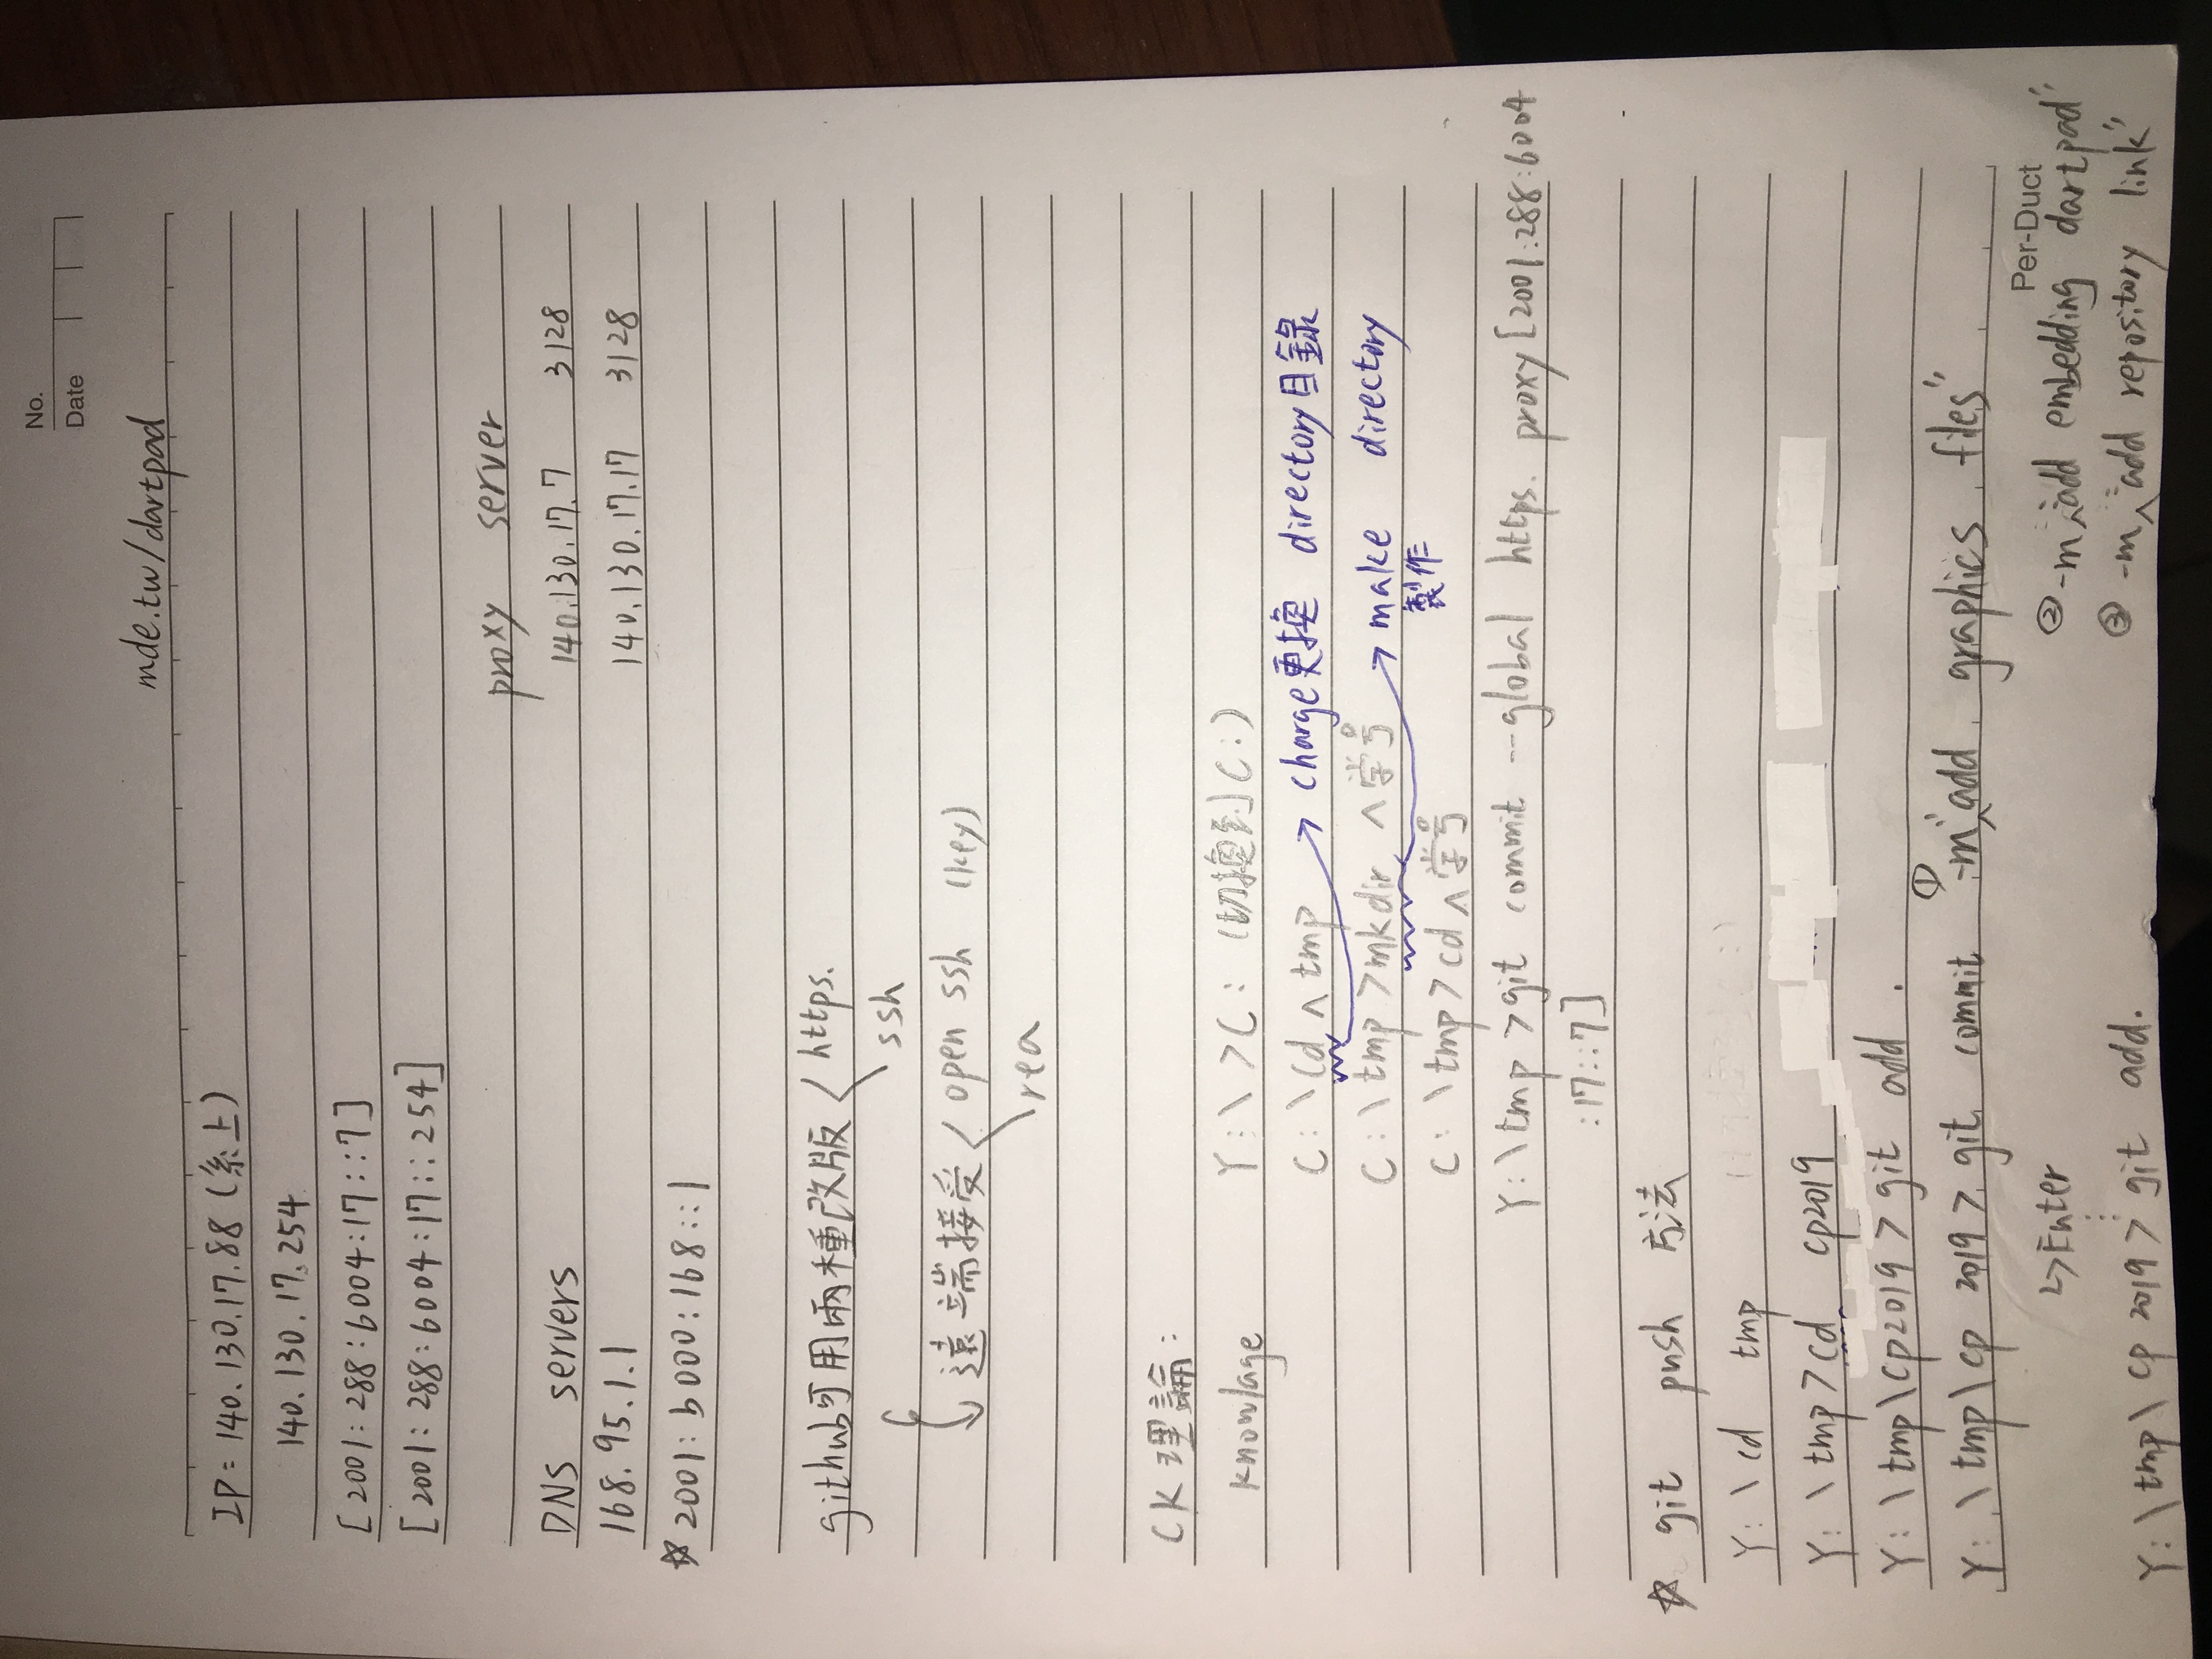 No.
Date
mde.tw/dartpad
IP = 140.130.17.88 (系上)
140.130.17.254
[2001:288:6004:17::7]
[2001:288:6004:17::254]
proxy server
DNS servers 140.130.17.7 3128
168.95.1.1 140.130.17.17 3128
☆ 2001:b000:168::1
github可用兩種改版 < https.
ssh
↳ 遠端接受 < open ssh (key)
rea
CK理論:
knowlage Y:\>C: (切換到C:)
C:\cd ^ tmp → change更換 directory目錄
C:\tmp>mkdir ^ 學号 → make directory
製作
C:\tmp>cd ^ 學号
Y:\tmp>git commit --global https. proxy [2001:288:6004
:17::7]
☆ git push 方法
Y:\cd tmp
Y:\tmp>cd cp2019
Y:\tmp\cp2019>git add .
Y:\tmp\cp 2019>git commit ① -m "add graphics files"
↳Enter ② -m "add embedding dartpad"
Per-Duct
Y:\tmp\cp 2019>git add. ③ -m "add repository link"